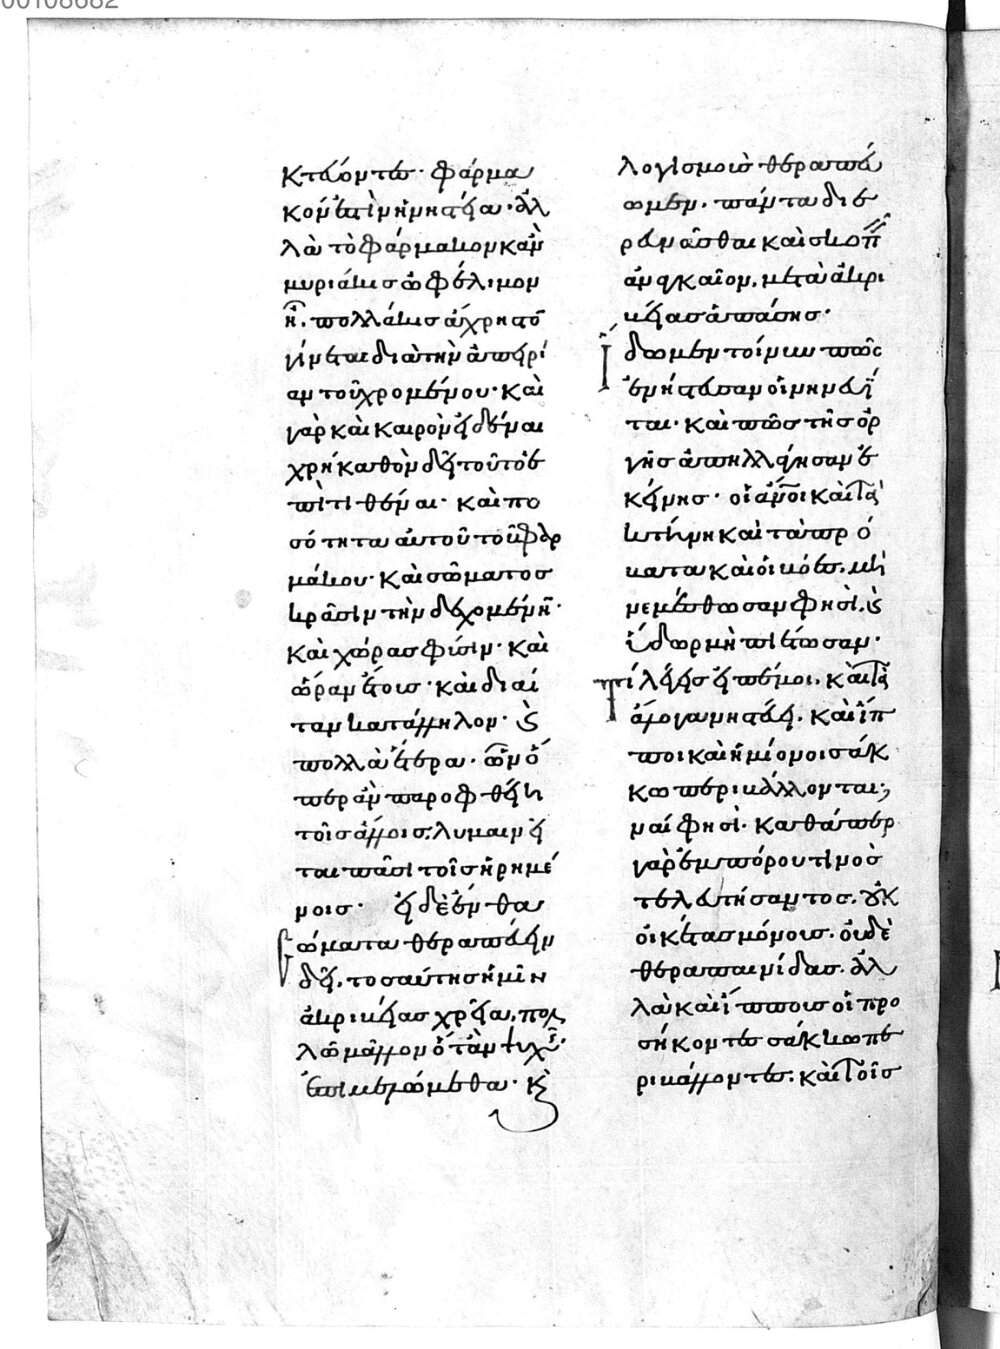 κτέον τέως. φάρμα
κον ἐπινήνησται. ἀλ
λὰ τὸ φάρμακον κἂν
μυριάκις ὠφέλιμον
ἦ. πολλάκις ἄχρηστον
γίνεται διὰ τὴν ἀπειρί
αν τοῦ χρομένου. καὶ
γὰρ καὶ καιρὸν εἰδέναι
χρὴ καθ' ὃν δεῖ τοῦτο ἐ
πιτιθέναι. καὶ πο
σότητα αὐτοῦ τοῦ φαρ
μάκου. καὶ σώματος
κρᾶσιν τὴν δεχομένην.
καὶ χώρας φύσιν. καὶ
ὥραν ἔτους. καὶ δίαι
ταν κατάλληλον. καὶ
πολλὰ ἕτερα. ὧν ὅ
περ ἂν παροφθείη
τοῖς ἄλλοις λυμαίνε
ται πᾶσι τοῖς εἰρημέ
νοις. εἰ δὲ ἔνθα
σώματα θεραπεύειν
δεῖ. τοσαύτης ἡμῖν
ἀκριβείας χρεία. πολ
λῶ μᾶλλον ὅταν ψυχῆς
ἐπιμελώμεθα. καὶ
λογισμοὺς θεραπεύ
ωμεν. πάντα διε
ρευνᾶσθαι καὶ σκοπεῖν
ἀναγκαῖον. μετὰ ἀκρι
βείας ἁπάσης.
Ἴδωμεν τοίνυν πῶς
ἐνήστευσαν οἱ νηνευῖ
ται. καὶ πῶς τῆς ὀρ
γῆς ἀπηλλάγησαν ἐ
κείνης. οἱ ἄνθρωποι καὶ τὰ
κτήνη καὶ τὰ πρό
βατα καὶ οἱ βόες. μὴ
γευσάσθωσαν φησὶ. καὶ
ὕδωρ μὴ πιέτωσαν.
Τί λέγεις εἰπέ μοι. καὶ τὰ
ἄλογα νηστεύει. καὶ ἵπ
ποι καὶ ἡμίονοι σάκ
κω περιβάλλονται;
ναί φησὶ. καθάπερ
γὰρ ἐμπόρου τινὸς
τελευτήσαντος. οὐκ
οἰκέτας μόνους. οὐδὲ
θεραπαινίδας. ἀλ
λὰ καὶ ἵππους οἱ προ
σήκοντες σάκκω πε
ριβάλλοντες. καὶ τοῖς